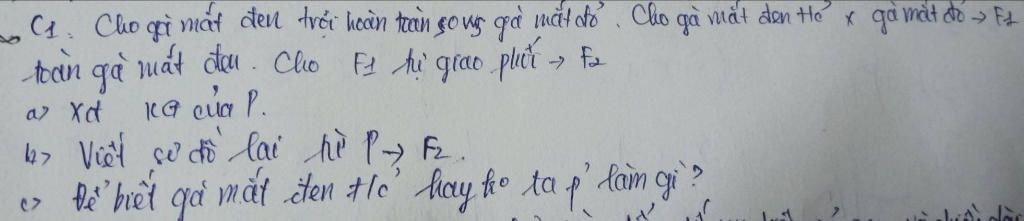 C1. Cho gà mắt đen trội hoàn toàn so vs gà mắt đỏ. Cho gà mắt đen t/c x gà mắt đỏ → F1
toàn gà mắt đen. Cho F1 tự giao phối → F2
a> Xđ KG của P.
b> Viết sơ đồ lai từ P → F2.
c> Để biết gà mắt đen t/c hay ko ta p' làm gì?